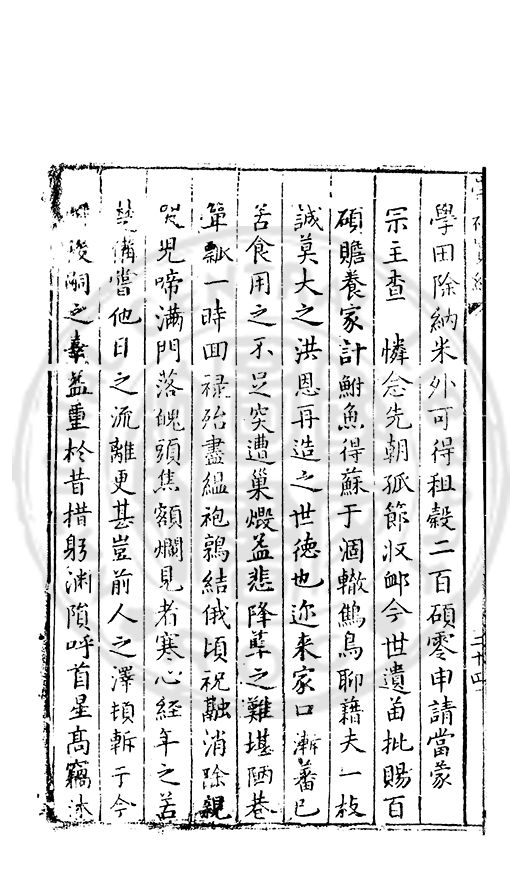 學田除納米外可得租穀二百碩零申請當蒙
宗主查　憐念先朝孤節收卹今世遺苗批賜百
碩贍養家計鮒魚得蘇于涸轍鷦鳥聊藉夫一枝
誠莫大之洪恩再造之世德也迩来家口漸蕃已
苦食用之不足突遭巢燬益悲降辜之難堪陋巷
簞瓢一時回祿殆盡縕袍鶉結俄頃祝融消除親
哭兒啼滿門落魄頭焦額爛見者寒心經年之苦
楚備嘗他日之流離更甚豈前人之澤頓斬于今
後嗣之辜益重於昔措躬淵隕呼首星高竊沐
二十四